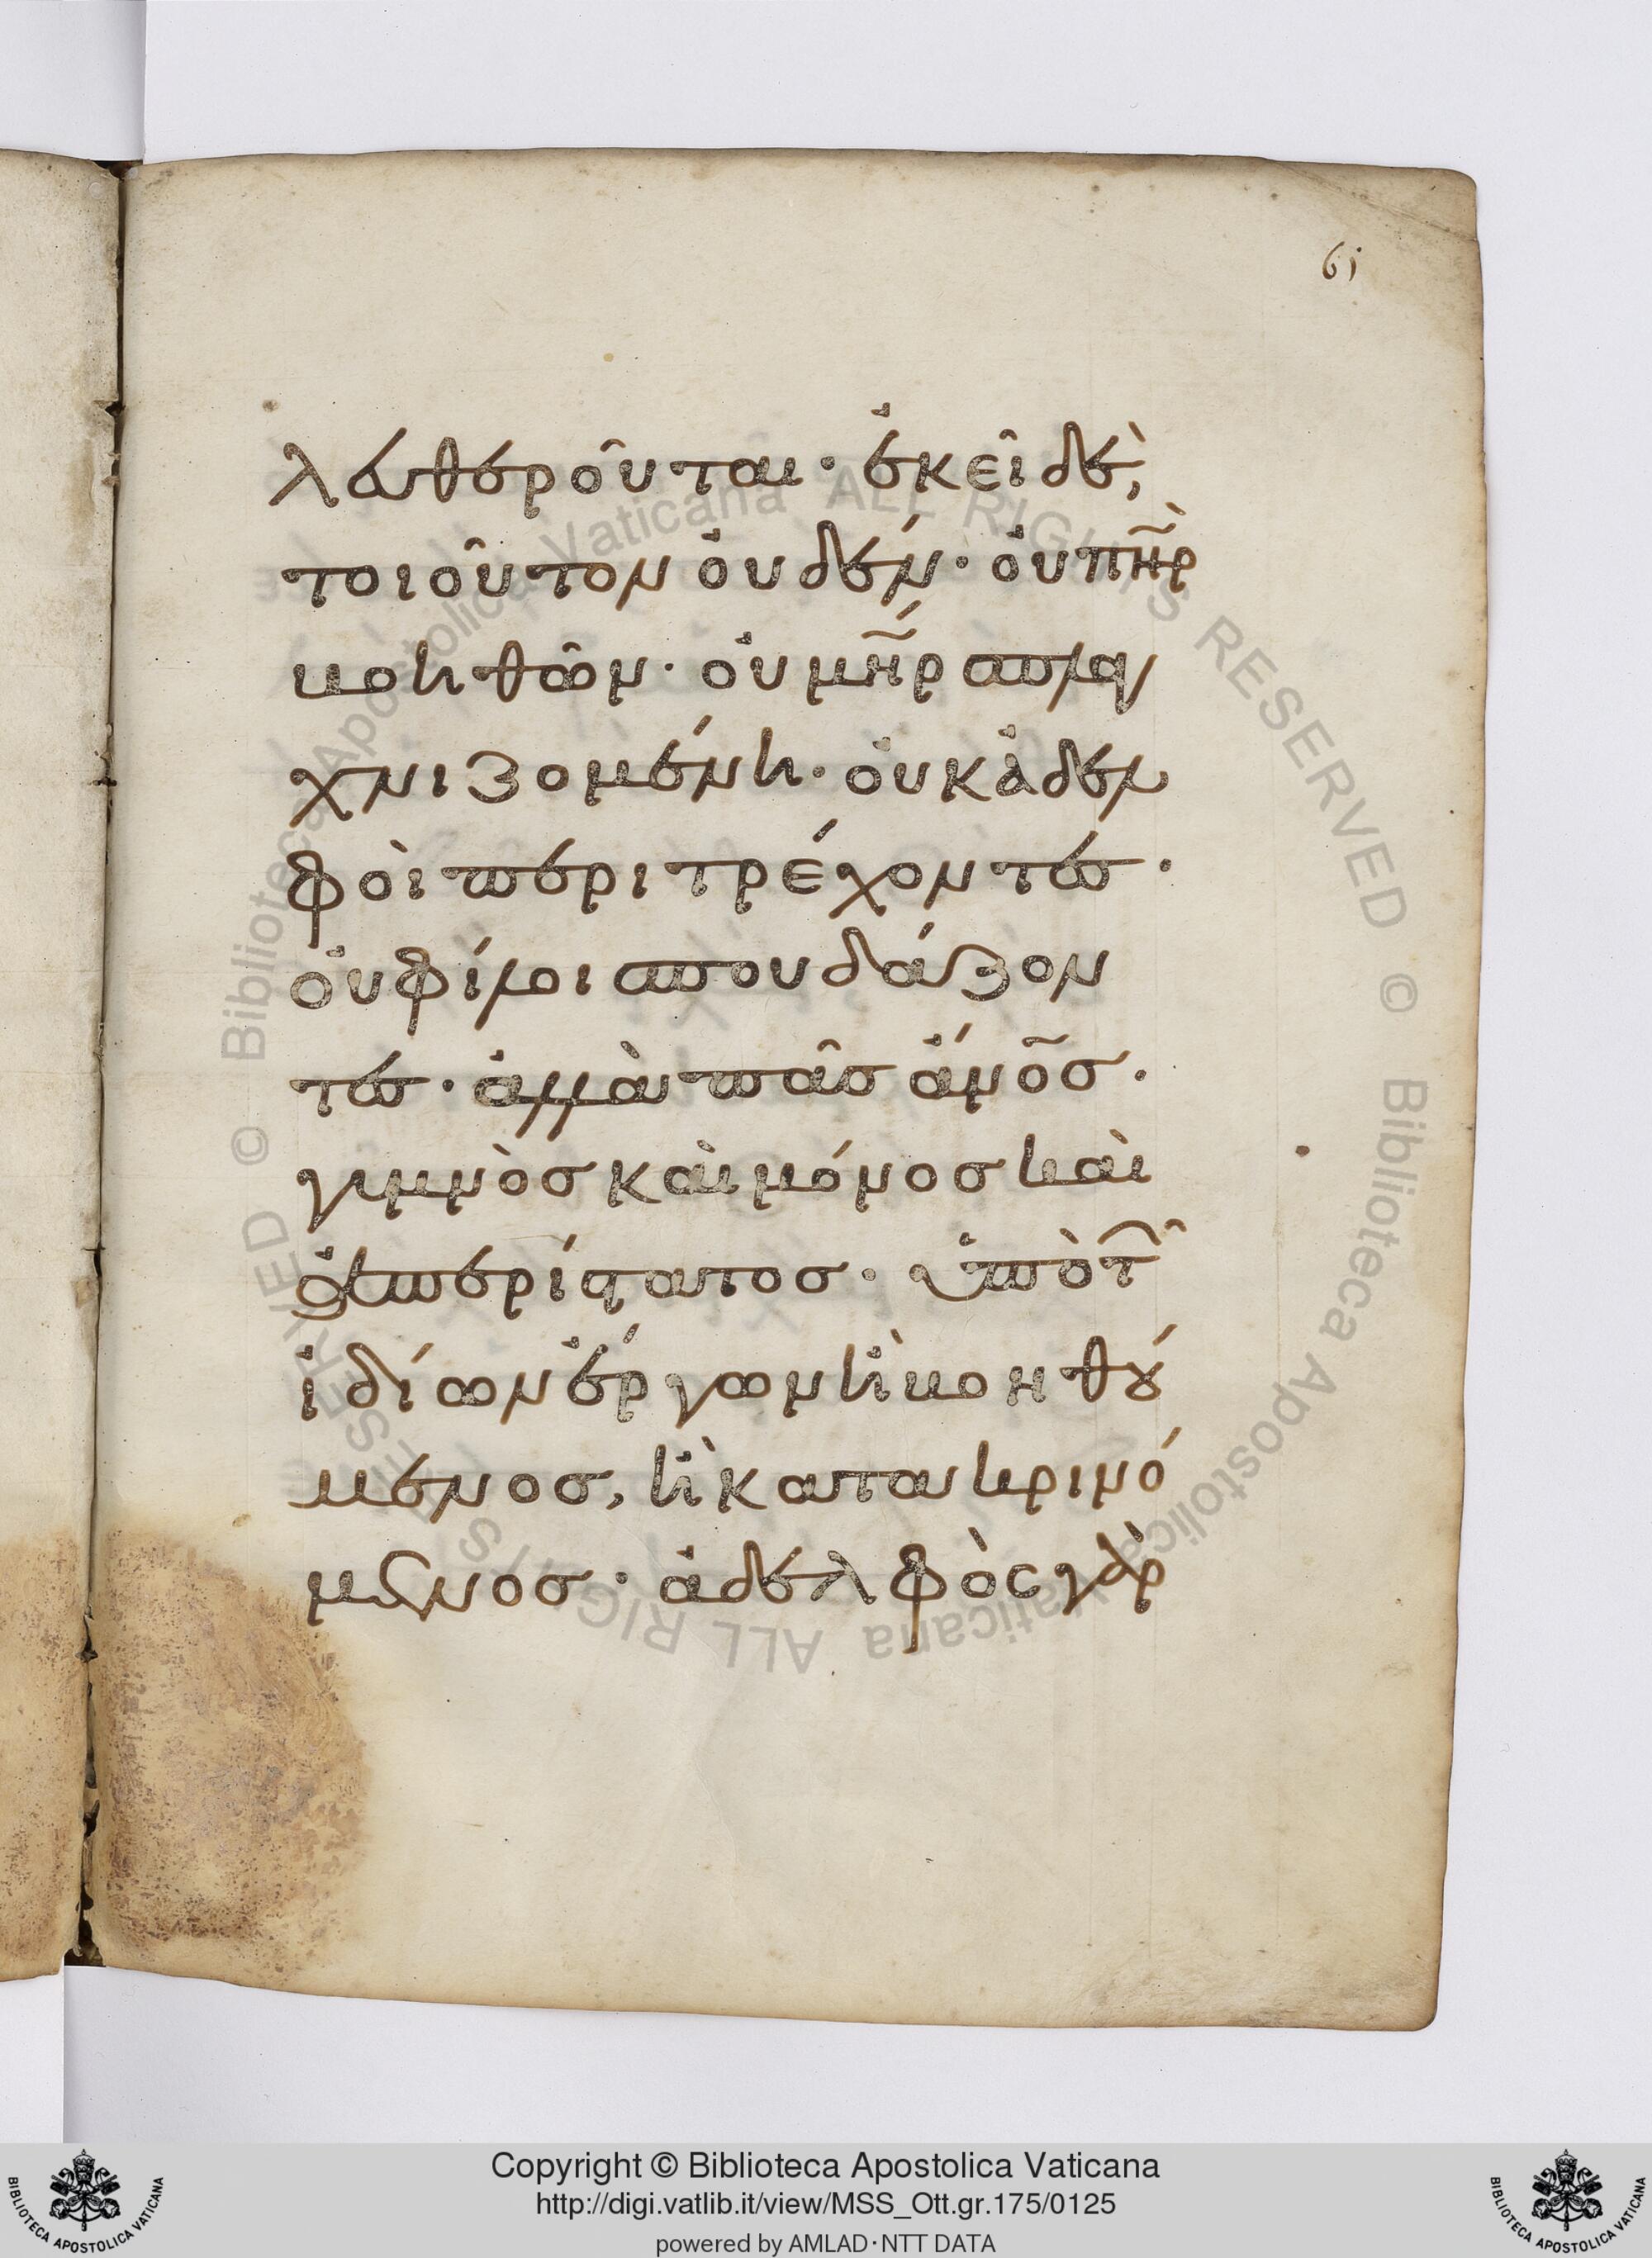 61
λευθεροῦται· ἐκεῖ δὲ,
τοιοῦτον οὐδέν· οὐ πη̃ρ
βοηθῶν· οὐ μη̃ρ σπλα
χνιζομένη· οὐκ ἀδελ
φοὶ περιτρέχοντες·
οὐ φίλοι σπουδάζον
τες· ἀλλὰ πᾶς ἄνο̃ς·
γυμνὸς καὶ μόνος καὶ
ἀπερίστατος· ὑπὸ τ῀
ἰδίων ἔργων ἢ βοηθού
μενος, ἢ κατακρινό
μενος· ἀδελφὸς γὰρ
© Biblioteca Apostolica Vaticana ALL RIGHTS RESERVED © Biblioteca Apostolica Vaticana ALL RIGHTS RESERVED
Copyright © Biblioteca Apostolica Vaticana
http://digi.vatlib.it/view/MSS_Ott.gr.175/0125
powered by AMLAD·NTT DATA
BIBLIOTECA APOSTOLICA VATICANA
BIBLIOTECA APOSTOLICA VATICANA